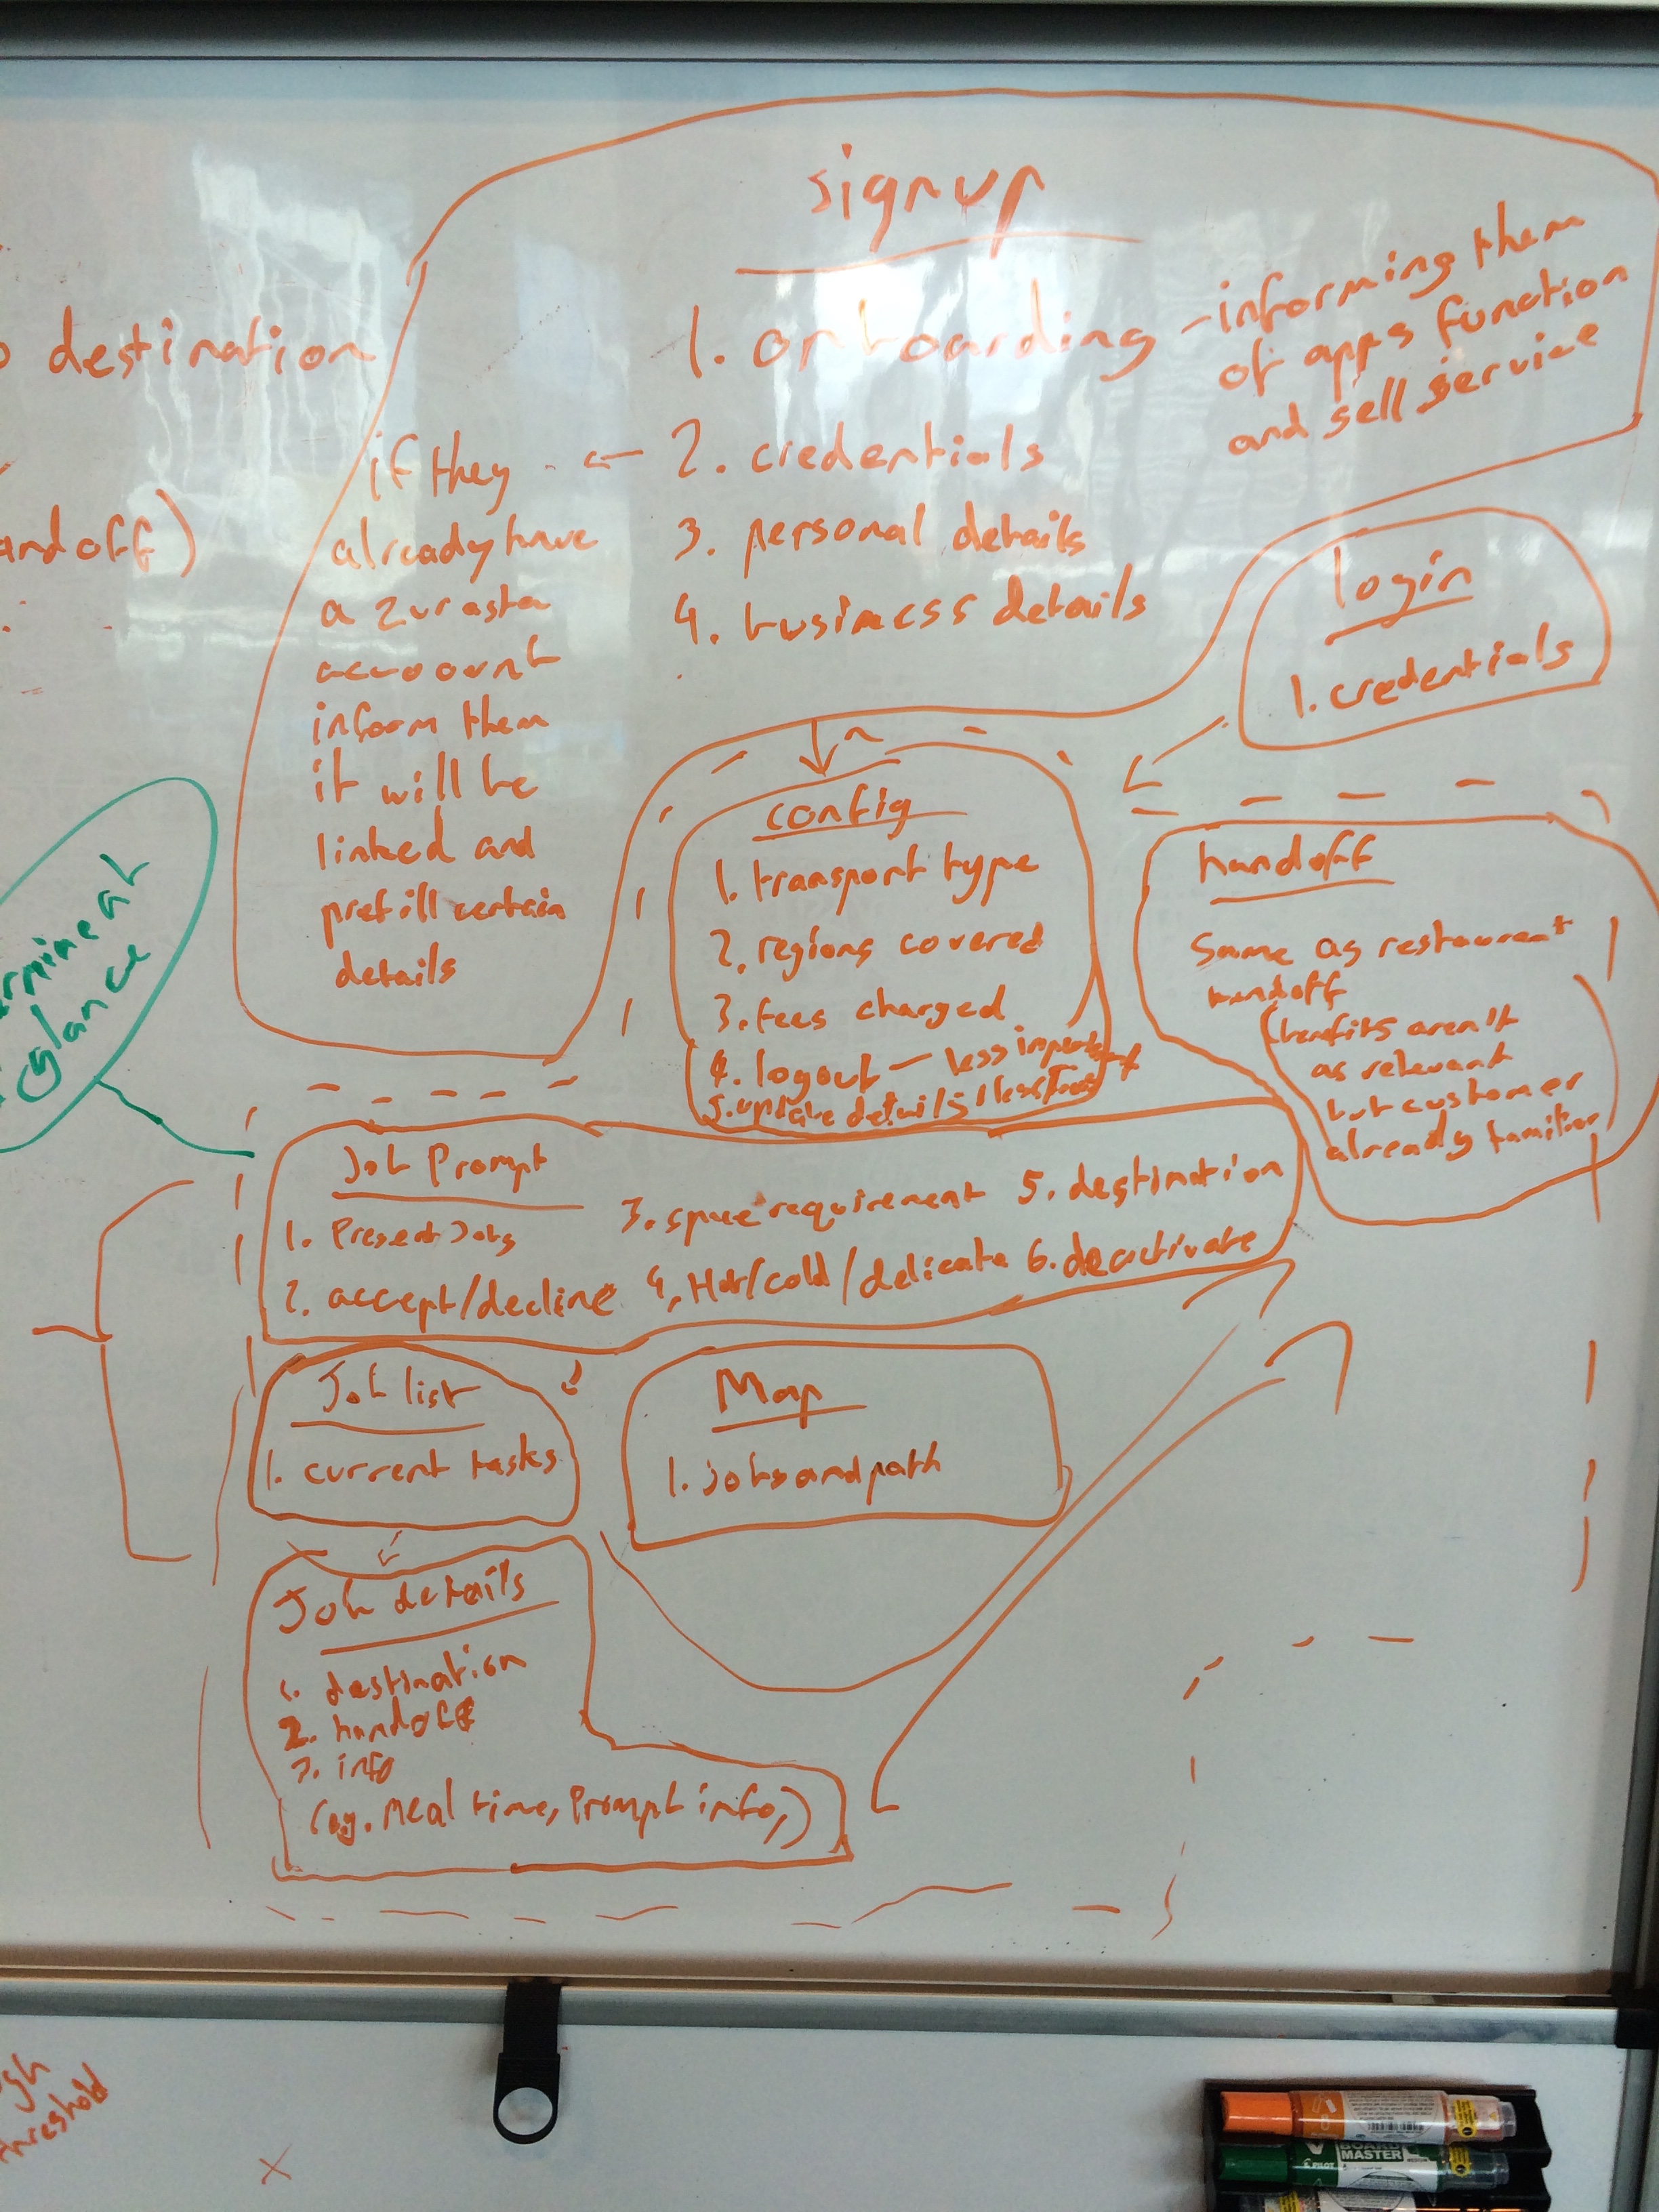 signup
1. onboarding - informing them
of apps function
and sell service
destination
2. credentials
if they
already have
a zurasta
account
inform them
it will be
linked and
prefill certain
details
3. personal details
4. business details
andoff)
login
1. credentials
config
1. transport type
2. regions covered
3. fees charged
4. logout - less important
5. update details
handoff
Same as restaurant
handoff
(benefits aren't
as relevant
but customer
already familiar)
glance
Job Prompt
1. Present Jobs
2. accept/decline
3. space requirement
4. Hot/cold/delicate
5. destination
6. deactivate
Job list
1. current tasks
Map
1. jobs and path
Job details
1. destination
2. handoff
3. info
(eg. Meal time, Prompt info,)
threshold
x
BOARD
MASTER
PILOT